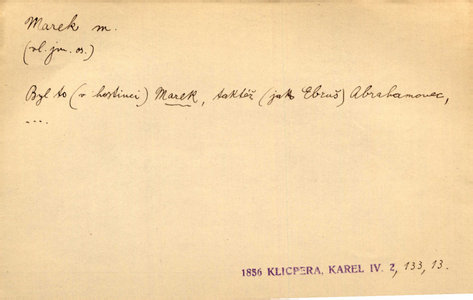 Marek m.
(vl. jm. os.)
Byl to (v hostinci) Marek, taktéž (jak Ebruš) Abrahamovec,
....
1856 KLICPERA, KAREL IV. 2, 133, 13.